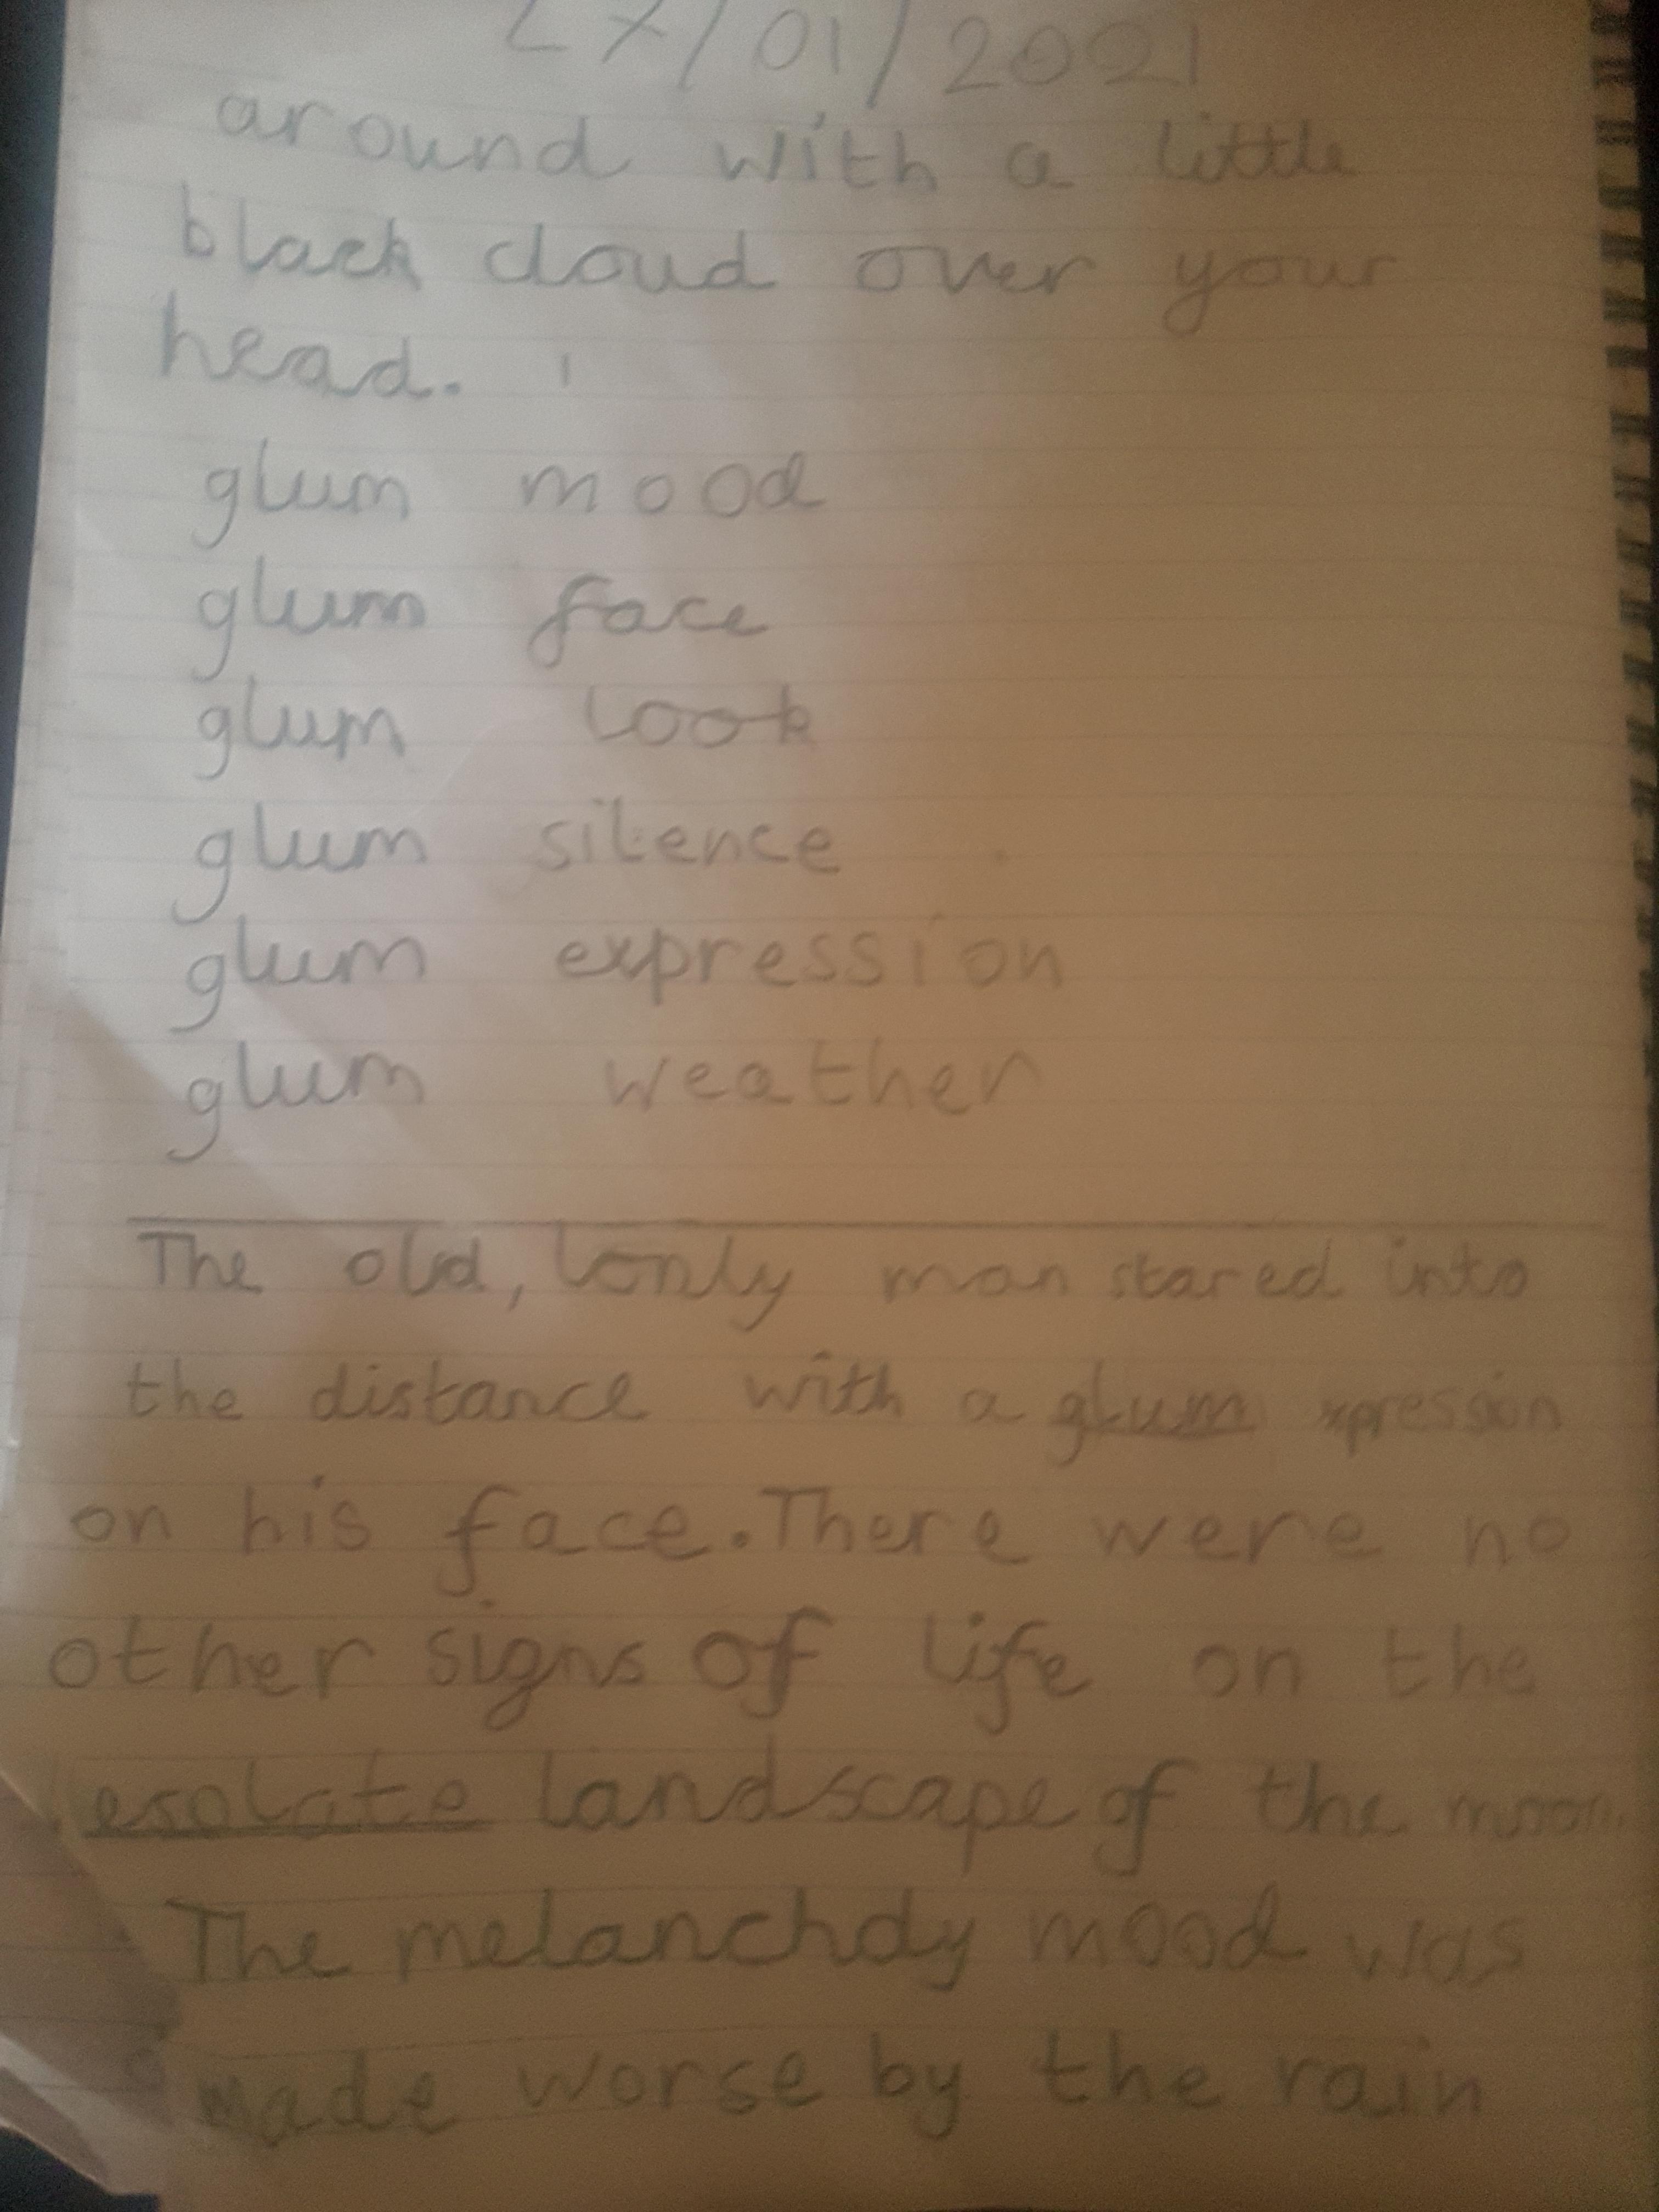 27/01/2021
around with a little
black cloud over your
head.
glum mood
glum face
glum look
glum silence
glum expression
glum weather
The old, lonly man stared into
the distance with a glum xpression
on his face. There were no
other signs of life on the
desolate landscape of the moon.
The melancholy mood was
made worse by the rain